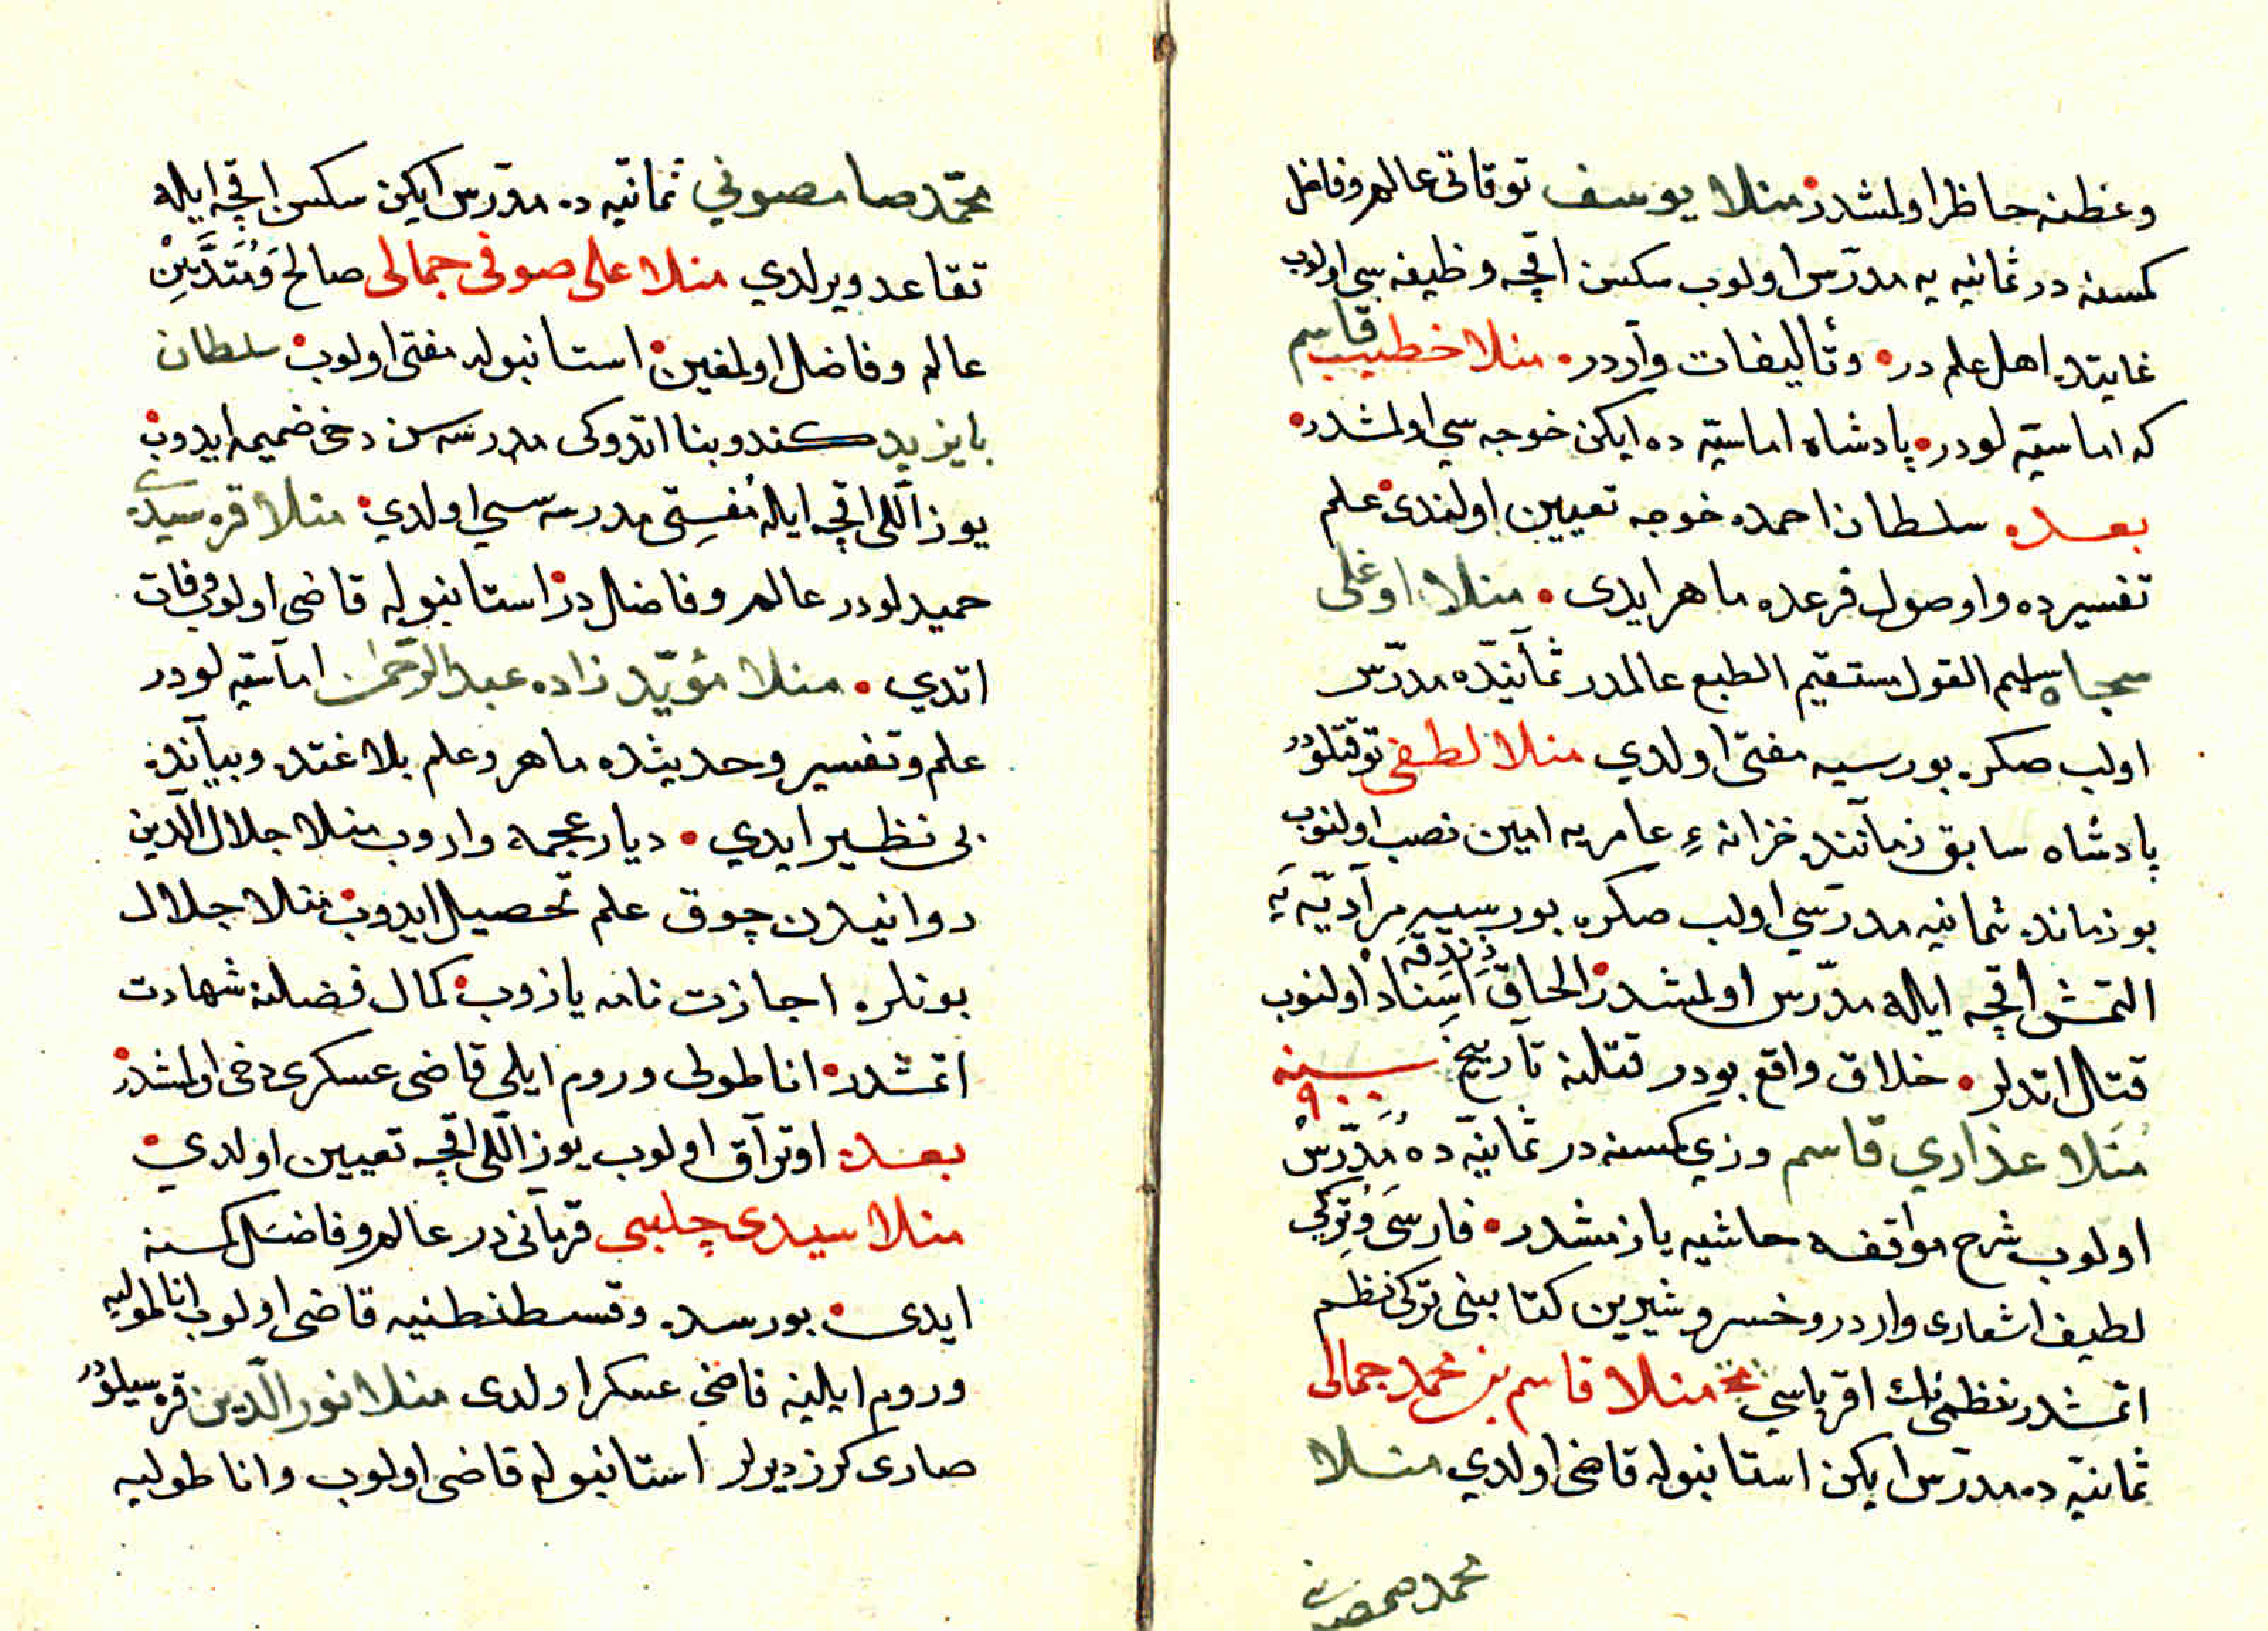 وعظنه حاظر اولمشدر منلا يوسف توقاتى عالم و فاضل
كمسنه در ثمانيه يه مدرّس اولوب سكسن اقچه وظيفه سي اولوب
غايتده اهل علم در وتأليفات واردر منلا خطيب قاسم
كه اماسيّه لودر پادشاه اماسيّه ده ايكن خوجه سي اولمشدر
بعده سلطان احمده خوجه تعيين اولندى علم
تفسيرده واوصول فرعده ماهر ايدى منلا اوغلى
سليم القول مستقيم الطبع عالمدر ثمانيّده مدرّس
اولب صكره بورسيه مفتى اولدي منلا لطفى توقتلودر
پادشاه سابق زماننده خزانهٔ عامريه امين نصب اولنوب
بو زمانده ثمانيه مدرّسي اولب صكره بورسيه مرآديّه يه
التمش اقچه ايله مدرّس اولمشدر الحاق زندقه اسناد اولنوب
قتل اتدلر خلاق واقع بودر قتلنه تآريخ سنه ٩٠٠
منلا عذاري قاسم وزي كمسنه در ثمانيّه ده مدرّس
اولوب شرح مواقفه حاشيه يازمشدر فارسى وتركى
لطيف اشعارى واردر وخسرو شيرين كتابنى تركى نظم
اتمشدر نظمى نك اقرباسي منلا قاسم بن محمد جمالى
ثمانيّه ده مدرّس ايكن استانبوله قاضى اولدي منلا
محمد صمصونى
محمّد صامصوني ثمانيّه ده مدرّس ايكن سكسن اقچه ايله
تقاعد ويرلدي منلا على صوفى جمالى صالح ومتديّن
عالم وفاضل اولمغين استانبوله مفتى اولوب سلطان
بايزيد كندو بنا اتدوكى مدرسه سن دخى ضميمه ايدوب
يوز اللى اقچه ايله مفتى مدرسه سي اولدي منلا قره سيدى
حميدلودر عالم وفاضل در استانبوله قاضى اولوب وفات
اتدي منلا مؤيّد زاده عبد الرّحمن امآسيّه لودر
علم وتفسير وحديثده ماهر وعلم بلاغتده وبيآنده
بى نظير ايدي ديار عجمه واروب منلا جلال الدّين
دوانيدن چوق علم تحصيل ايدوب منلا جلال
بونلره اجازت نامه يازوب كمال فضلنه شهادت
اتمشدر اناطولى و روم ايلى قاضى عسكرى دخى اولمشدر
بعده اوترآق اولوب يوز اللى اقچه تعيين اولدي
منلا سيدى چلبى قرمآنى در عالم و فاضل كمسنه
ايدى بورسده وقسطنطنيه قاضى اولوب اناطوليه
وروم ايلينه قاضى عسكر اولدى منلا نور الدّين قره سيلودر
صارى كرز ديرلر استانبوله قاضى اولوب واناطوليه